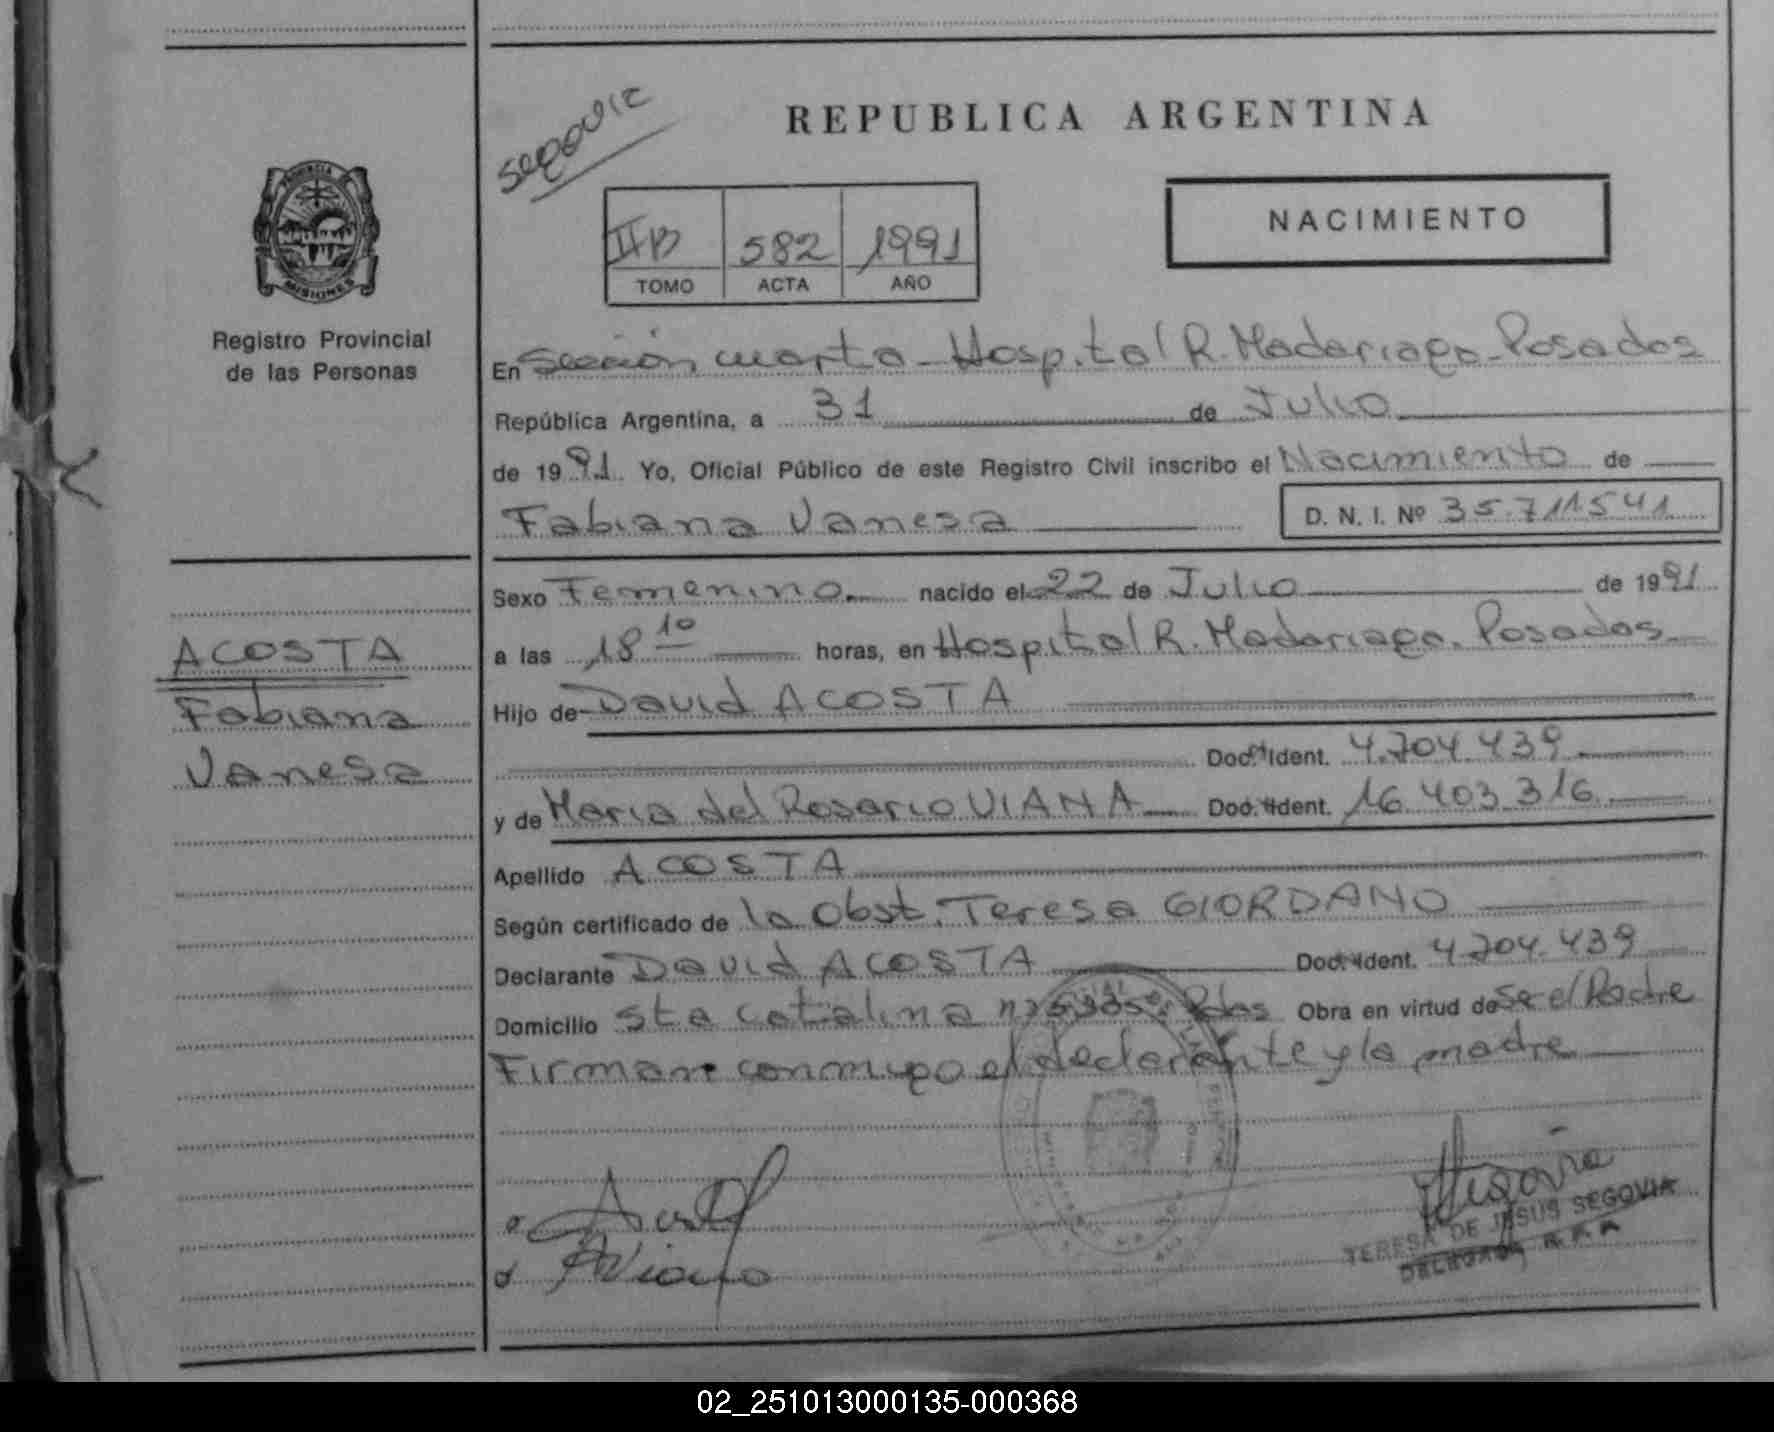 Segovia
REPUBLICA ARGENTINA
NACIMIENTO
II B 582 1991
TOMO ACTA AÑO
PROVINCIA DE
MISIONES
Registro Provincial
de las Personas
En Sección cuarta - Hospital R. Madariaga - Posadas
República Argentina, a 31 de Julio
de 1991 Yo, Oficial Público de este Registro Civil inscribo el Nacimiento de
Fabiana Vanesa D. N. I. Nº 35.711541
Sexo Femenino nacido el 22 de Julio de 1991
ACOSTA
Fabiana
Vanesa
a las 18 10 horas, en Hospital R. Madariaga. Posadas
Hijo de David ACOSTA
Doc. Ident. 4.704.439
y de Maria del Rosario VIANA Doc. Ident. 16.403.316
Apellido ACOSTA
Según certificado de la Obst. Teresa GIORDANO
Declarante David ACOSTA Doc. Ident. 4.704.439
Domicilio Sta Catalina Pdas Obra en virtud de Ser el Padre
Firman conmigo el declarante y la madre
TERESA DE JESUS SEGOVIA
DELEGADA R.P.P.
02_251013000135-000368